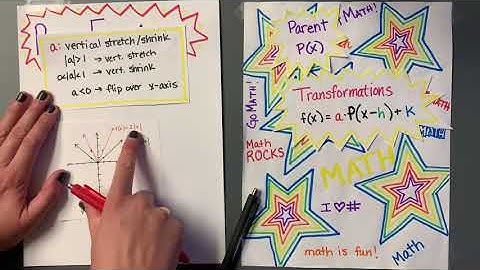 a: vertical stretch/shrink
|a|>1 → vert. stretch
0<|a|<1 → vert. shrink
a<0 → flip over x-axis
Parent
P(x)
Math!
Go Math!
Transformations
f(x) = a·P(x-h)+k
MATH
MATH
Math
ROCKS
MATH
I ♡ #
math is fun!
Math